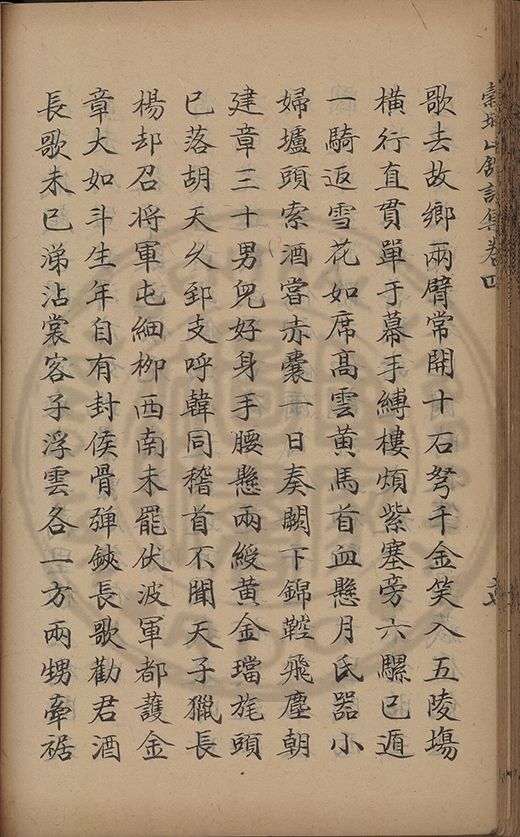 橐城山館詩集卷四
歌去故鄉兩臂常開十石弩千金笑入五陵塲
橫行直貫單于幕手縛樓煩紫塞旁六騾已遁
一騎返雪花如席高雲黃馬首血懸月氏器小
婦壚頭索酒嘗赤囊一日奏闕下錦鞚飛塵朝
建章三十男兒好身手腰懸兩綬黃金璫旄頭
已落胡天久郅支呼韓同稽首不聞天子獵長
楊却召將軍屯細柳西南未罷伏波軍都護金
章大如斗生年自有封侯骨彈鋏長歌勸君酒
長歌未已涕沾裳客子浮雲各一方兩甥牽裾